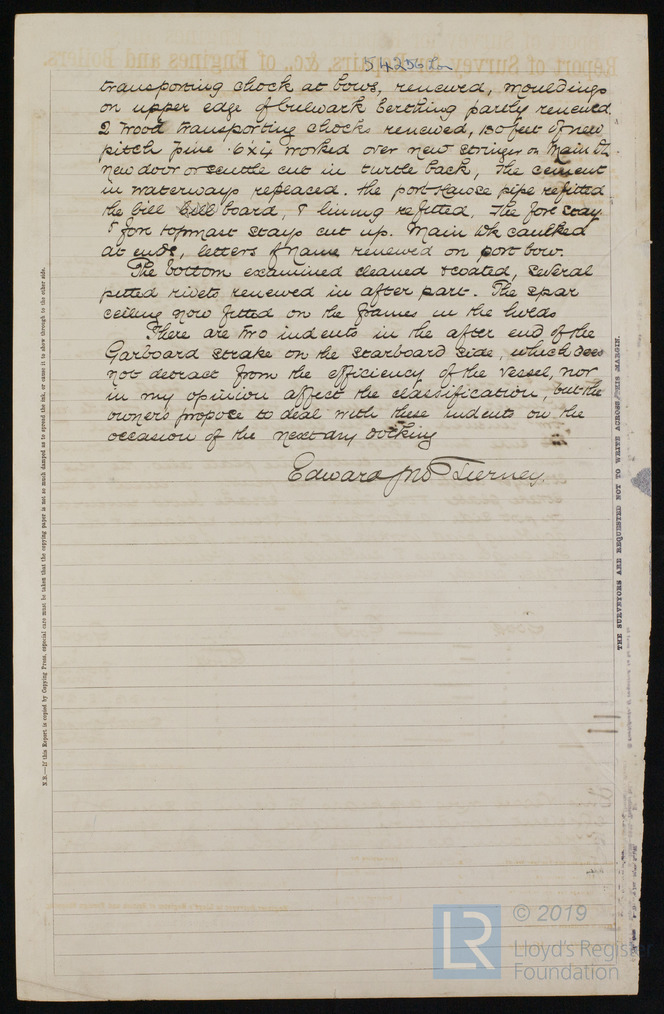 Report of Survey, Repairs, &c., of Engines and Boilers.
54256 Lon
transporting chock at bows, renewed, mouldings
on upper edge of bulwark berthing partly renewed.
2 wood transporting chocks renewed, 130 feet of new
pitch pine 6x4 worked over new stringer on Main Dk
new door or scuttle cut in turtle back, The cement
in waterways replaced. the port Hawse pipe refitted
the bill board, & lining refitted, The fore stay
& fore topmast stays cut up. Main Dk caulked
at ends, letters of name renewed on port bow.
The bottom examined cleaned & coated, several
pitted rivets renewed in after part. The spar
ceiling now fitted on the frames in the holds
There are two indents in the after end of the
Garboard strake on the starboard side, which does
not detract from the efficiency of the vessel, nor
in my opinion affect the classification, but the
owners propose to deal with these indents on the
occasion of the next dry docking
Edward Jno Tierney.
N.B.—If this Report is copied by Copying Press, especial care must be taken that the copying paper is not so much damped as to spread the ink, or cause it to show through to the other side.
THE SURVEYORS ARE REQUESTED NOT TO WRITE ACROSS THIS MARGIN.
LR
© 2019
Lloyd's Register
Foundation